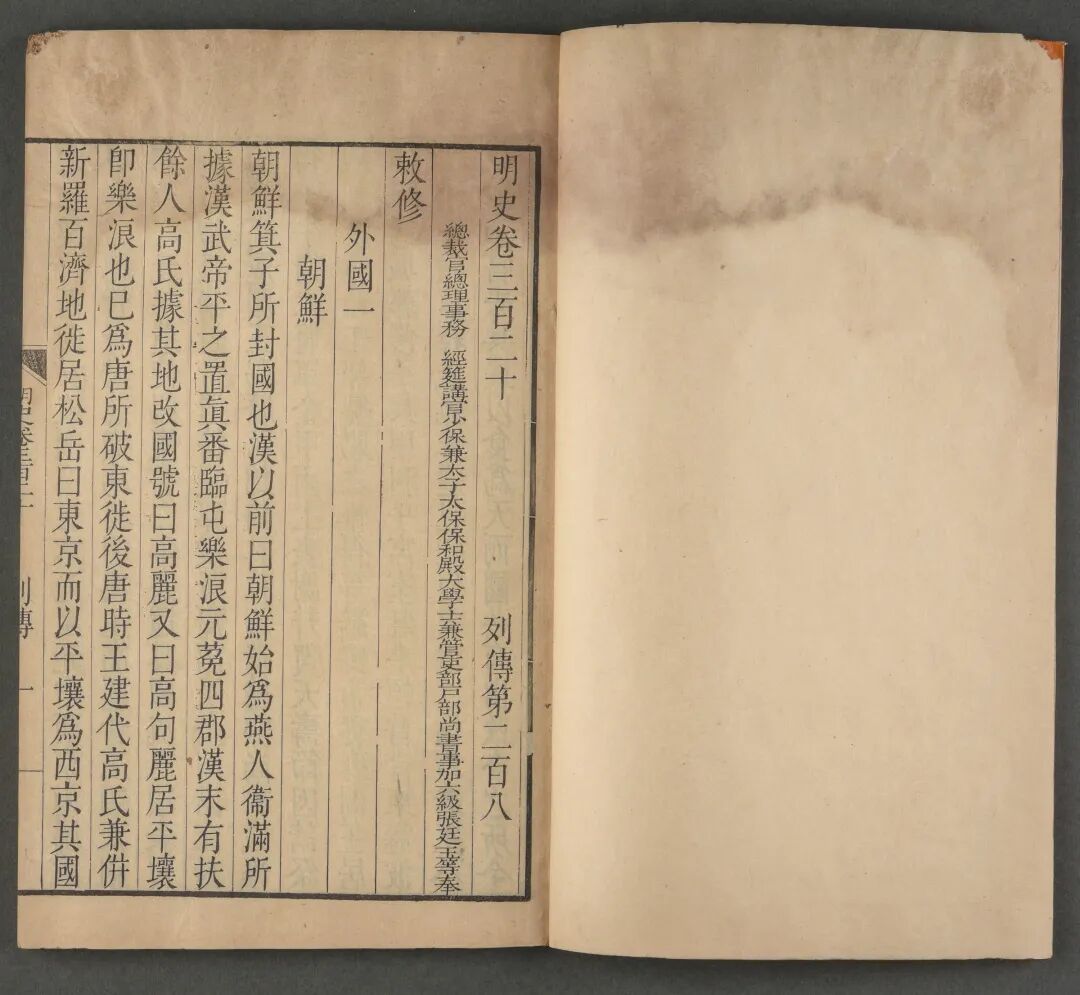 明史卷三百二十 列傳第二百八
總裁官總理事務 經筵講官少保兼太子太保保和殿大學士兼管吏部戶部尚書事加六級張廷玉等奉
敕修
外國一
朝鮮
朝鮮箕子所封國也漢以前曰朝鮮始爲燕人衞滿所
據漢武帝平之置眞番臨屯樂浪元菟四郡漢末有扶
餘人高氏據其地改國號曰高麗又曰高句麗居平壤
卽樂浪也已爲唐所破東徙後唐時王建代高氏兼倂
新羅百濟地徙居松岳曰東京而以平壤爲西京其國
明史卷三百二十 列傳 一